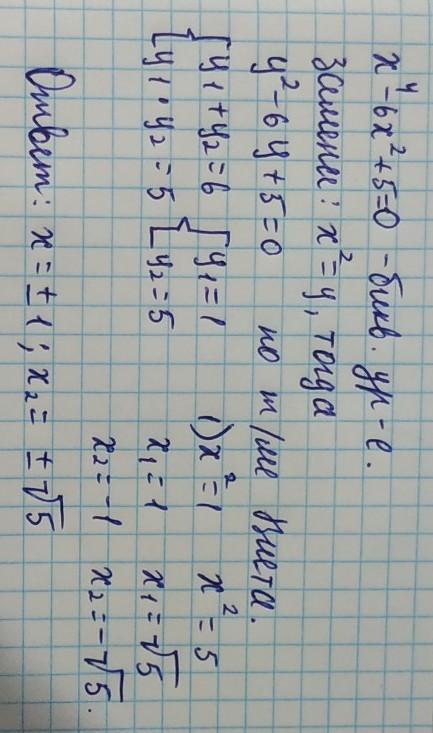 x⁴-6x²+5=0 - бикв. ур-е.
Замена: x²=y, тогда
y²-6y+5=0 по т/ме Виета.
{y1+y2=6 {y1=1 1) x²=1 x²=5
{y1·y2=5 {y2=5 x₁=1 x₁=√5
x₂=-1 x₂=-√5.
Ответ: x=±1; x₂=±√5